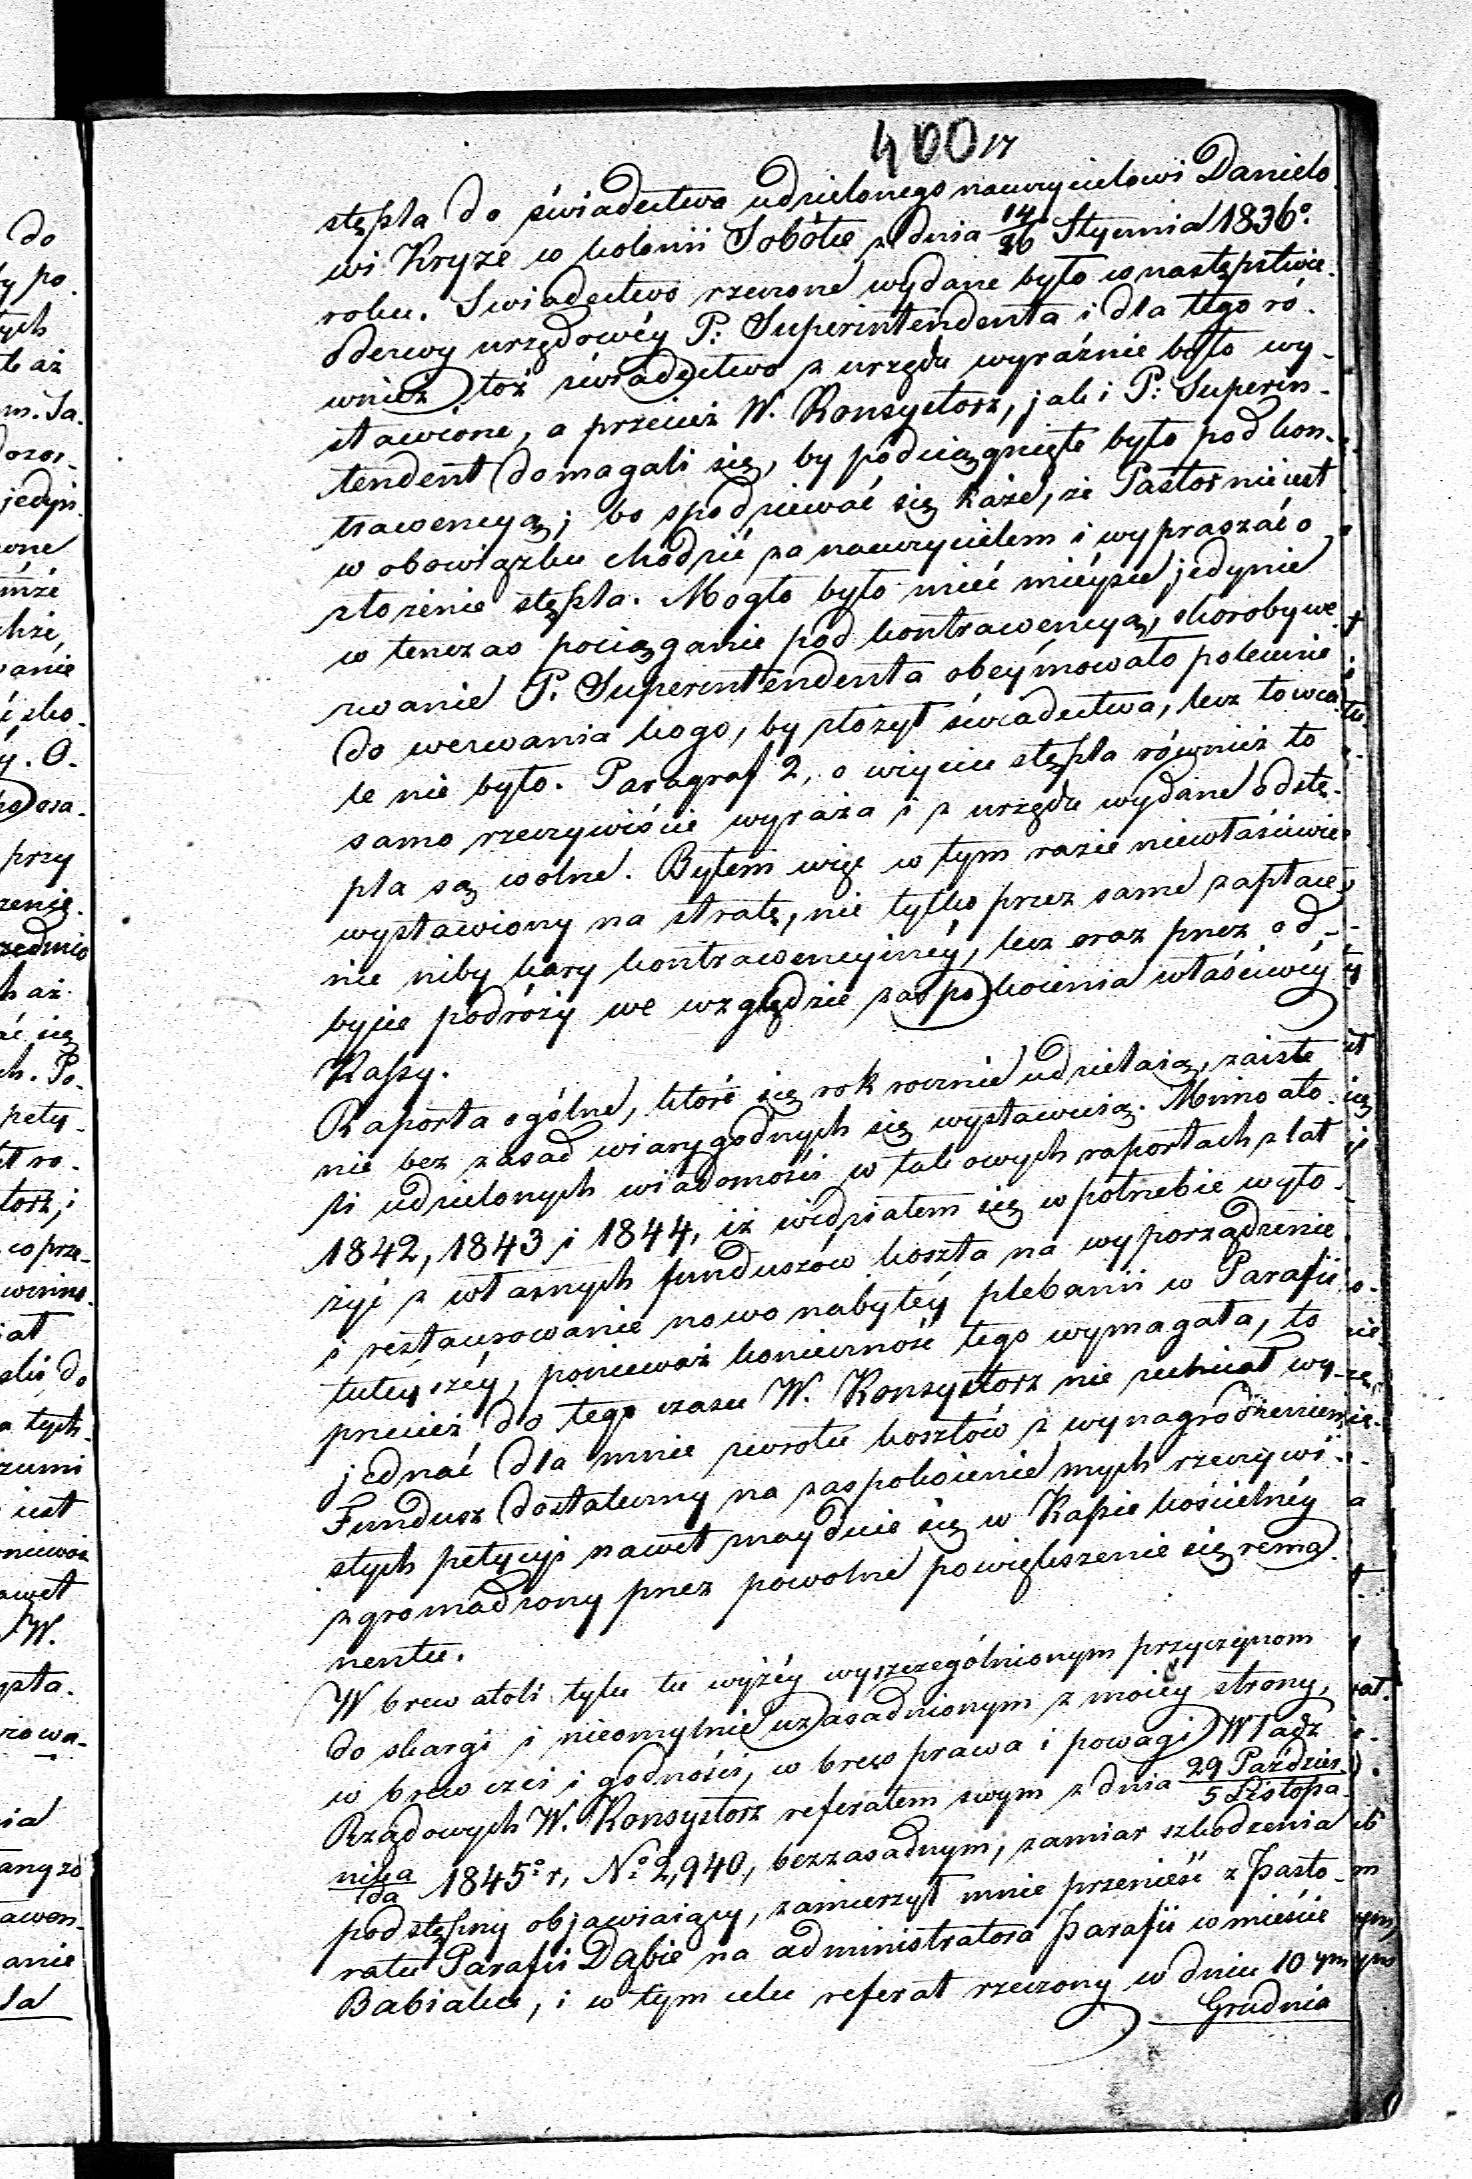 400 17
stępla do świadectwa udzielonego nauczycielowi Danielo
wi Kryze w kolonii Sobótce z dnia 14/26 Stycznia 1836º
roku. Swiadectwo rzeczone wydane było w następstwie
odezwy urzędowéy P: Superintendenta i dla tego ró-
wnież toż świadectwo z urzędu wyraźnie było wy-
stawione, a przecież W. Konsystorz, jak i P: Superin-
tendent domagali się, by podciągnięte było pod kon-
trawencyą; bo spodziewać się każe, że Pastor nie iest
w obowiązku chodzić za nauczycielem i wypraszać o
złożenie stępla. Mogło było mieć miéysce jedynie
w tenczas pociąganie pod kontrawencyą, skoroby we-
zwanie P. Superintendenta obeymowało polecenie
do wezwania kogo, by złożył świadectwa, lecz to wca
le nie było. Paragraf 2, o użyciu stępla również to
samo rzeczywiście wyraża i z urzędu wydane od stę-
pla są wolne. Byłem więc w tym razie niewłaściwie
wystawiony na stratę, nie tylko przez same zapłace-
nie niby kary kontrawencyinéy, lecz oraz przez od-
bycie podróży we względzie zaspokoienia właściwéy
Kassy.
Raporta ogólne, które się rok rocznie udzielaią, zaiste
nie bez zasad wiarygodnych się wystawuią. Mimo ato-
li udzielonych wiadomości w takowych raportach z lat
1842, 1843 i 1844, iż widziałem się w potrzebie wyło-
żyć z własnych funduszów koszta na wyporządzenie
i restaurowanie nowo nabytéy plebanii w Parafii
tuteyszéy, ponieważ konieczność tego wymagała, to
przecież do tego czasu W. Konsystorz nie zechciał wy-
jednać dla mnie zwrotu kosztów z wynagrodzeniem
Fundusz dostateczny na zaspokoienie mych rzeczywi-
stych petycyi nawet znayduie się w Kassie kościelnéy
zgromadzony przez powolne powiększenie się rema-
nentu.
W brew atoli tylu tu wyżéy wyszczególnionym przyczynom
do skargi i nieomylnie uzasadnionym z moiéy strony,
w brew czci i godności, w brew prawa i powagi Władz
Rządowych W. Konsystorz referatem swym z dnia 29 Paździer/5 Listopa-
nika/da 1845º r, Nº 2,940, bezzasadnym, zamiar szkodzenia
podstępny objawiaiący, zamierzył mnie przenieść z Pasto-
ratu Parafii Dąbie na administratora Parafii w mieście
Babiaku, i w tym celu referat rzeczony w dniu 10 ym
Grudnia